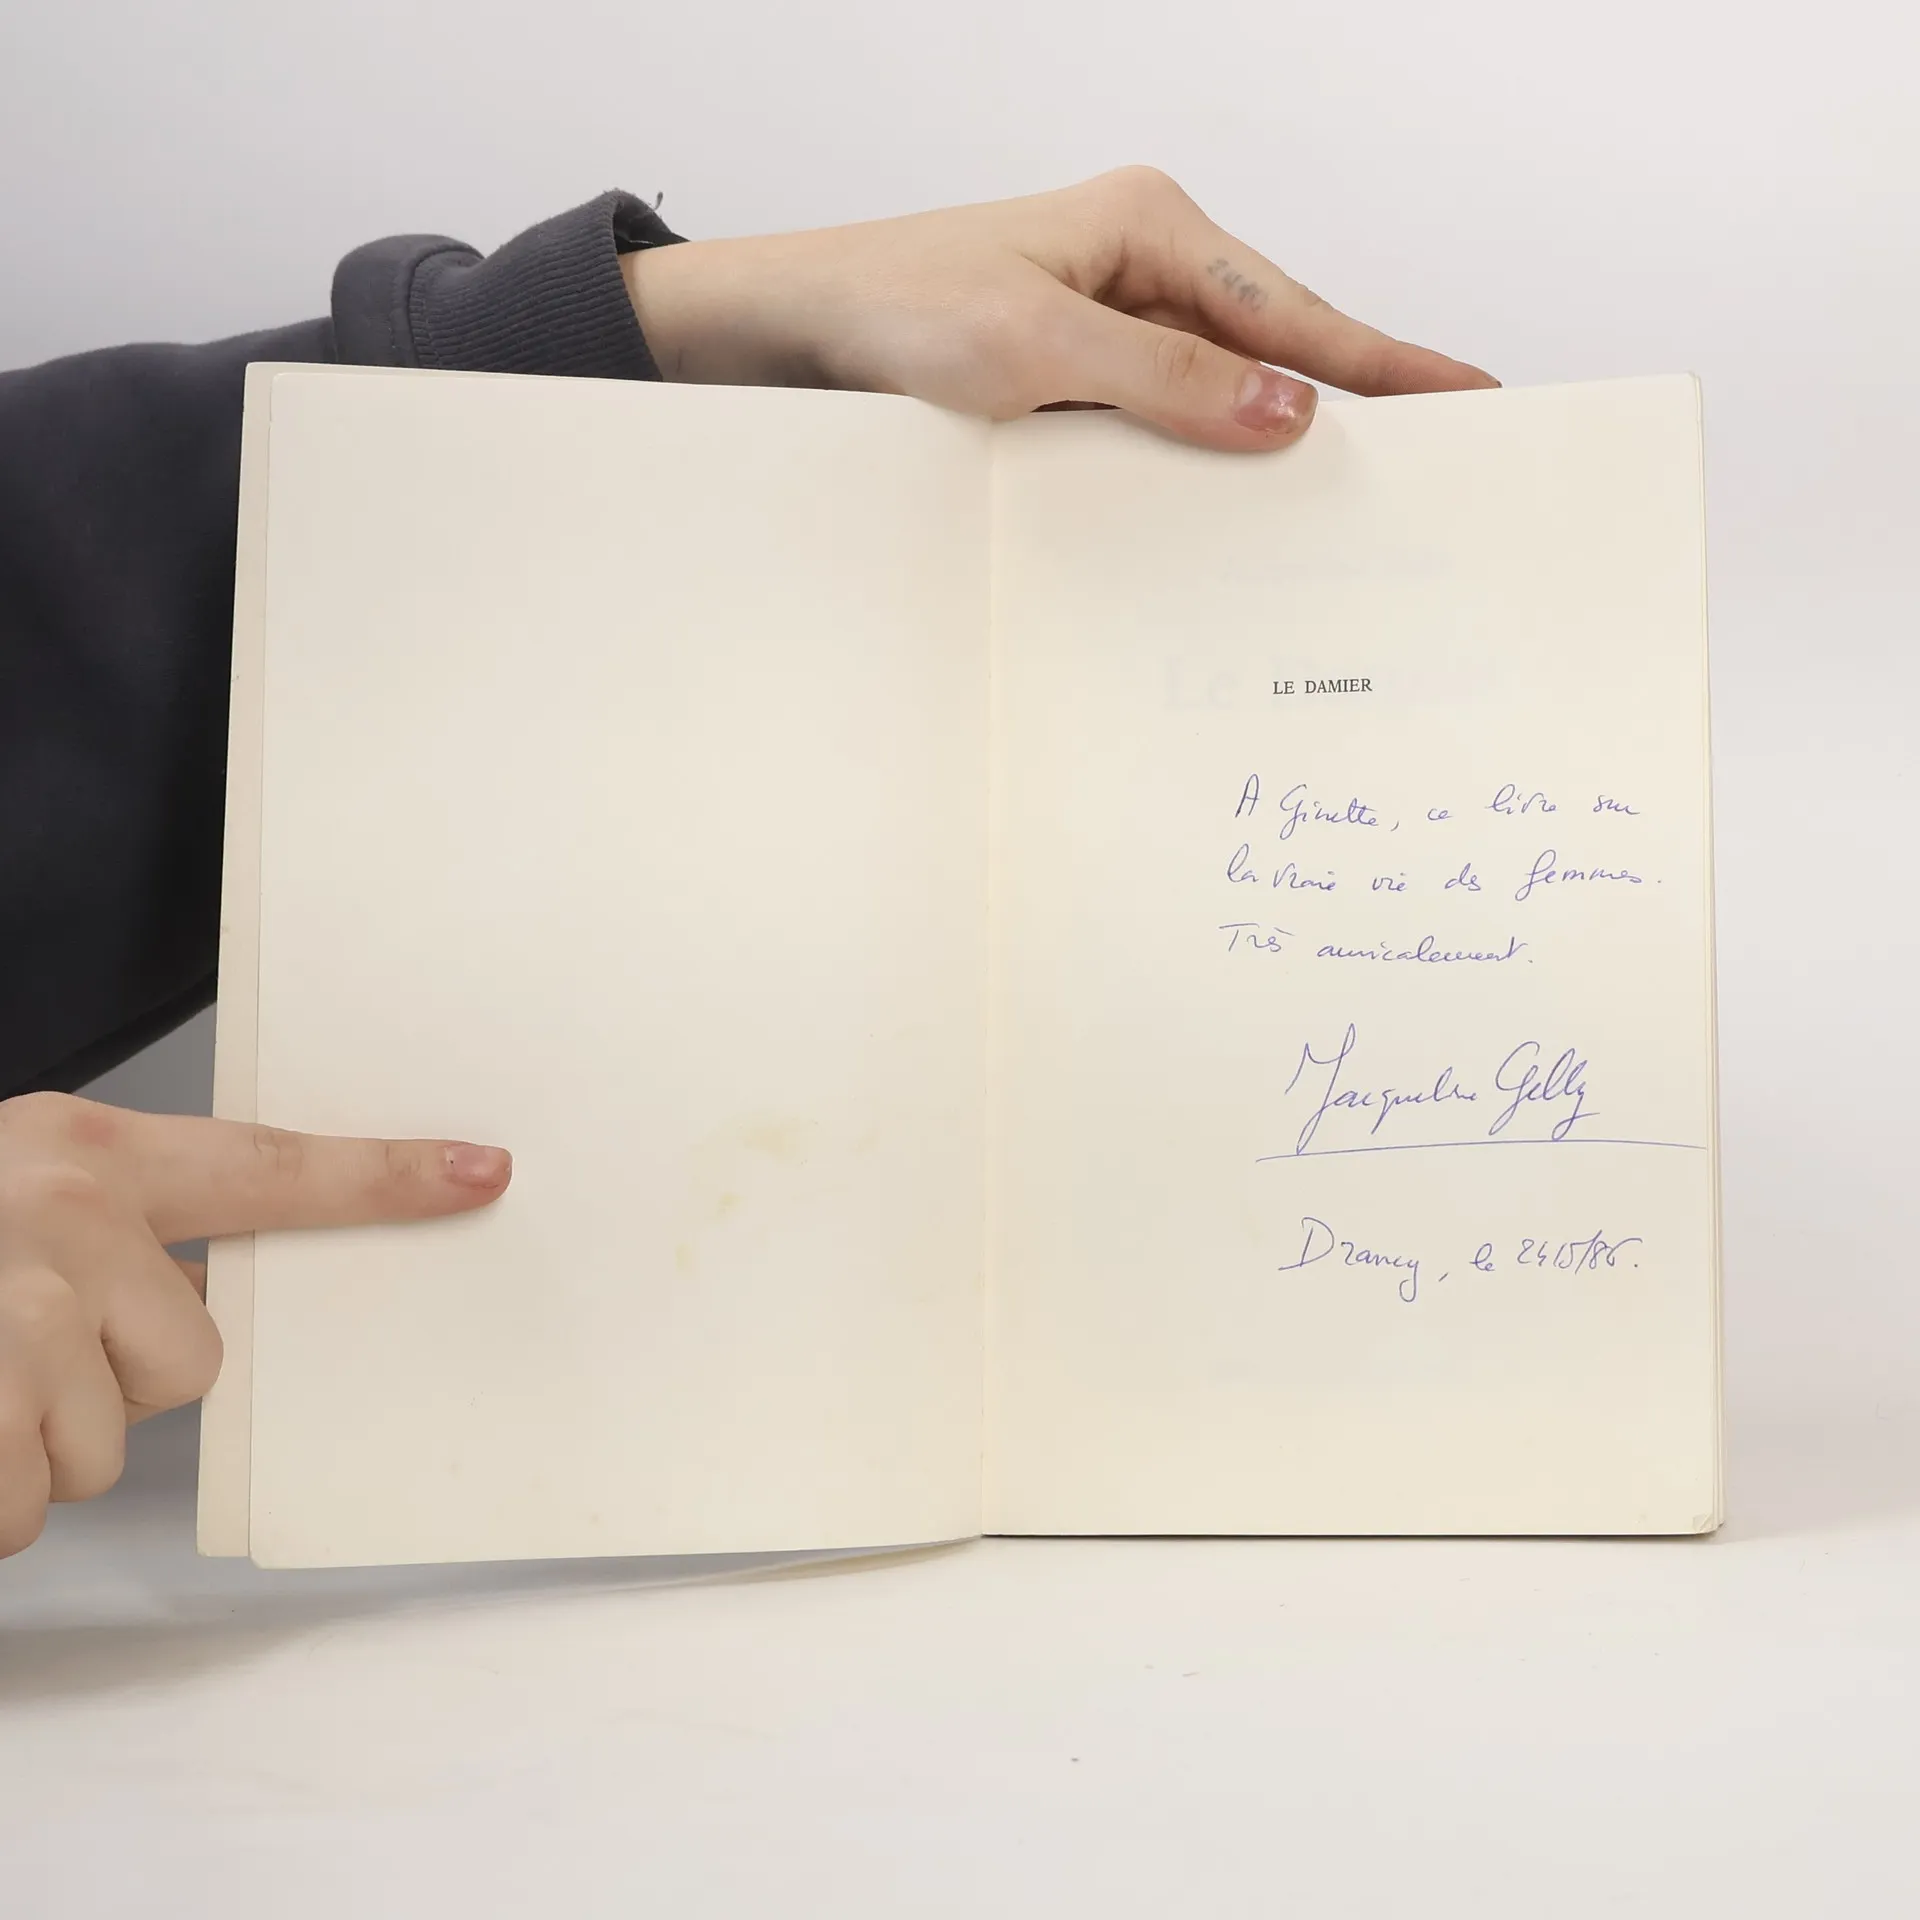 LE DAMIER
A Ginette, ce livre sur
la vraie vie des femmes.
Très amicalement.
Jacqueline Gelly
Drancy, le 24/5/86.